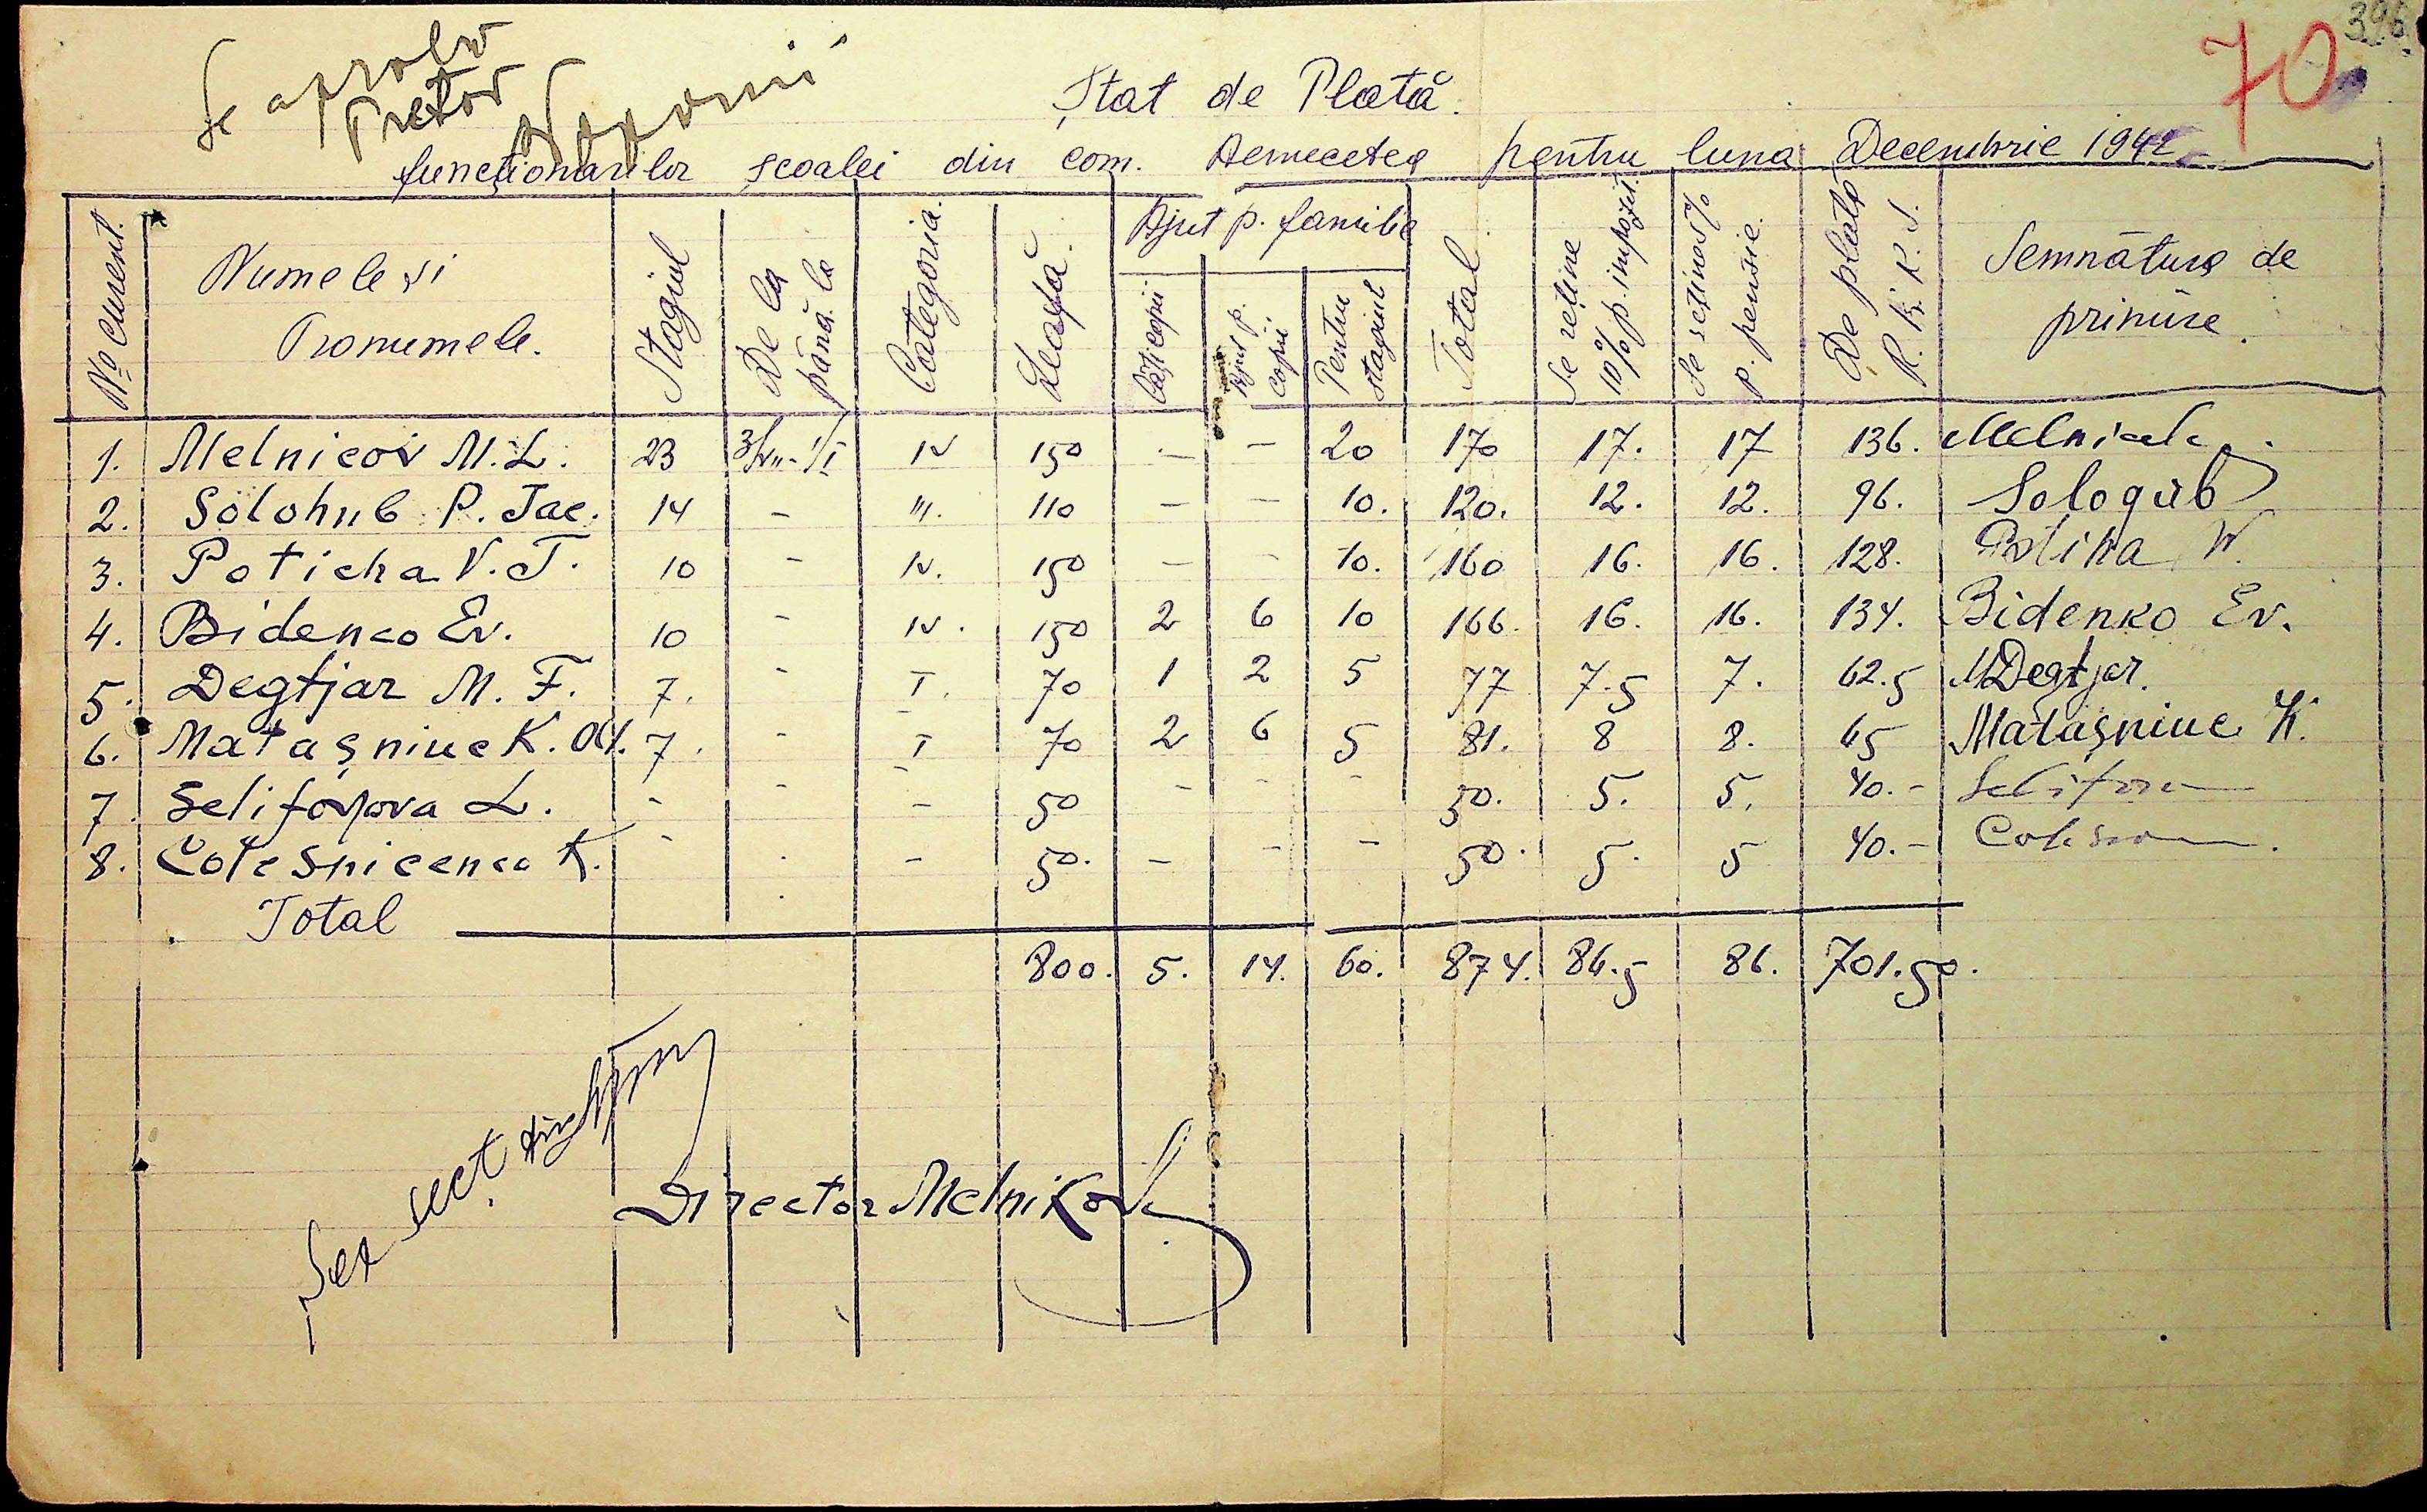 396.
70
Se aprobă
Pretor
Ștat de Plată.
funcționarilor școalei din com. pentru luna Decembrie 1942
No curent. Numele și Pronumele. Stagiul De la până la Categoria. Leafa. Ajut p. familie Câți copii Ajut p. copii Pentru stagiul Total Se reține 10% p. impozit. Se reține 10% p. pensie. De plată R.K.K.S. Semnătura de primire.
1. Melnicov M.L. 23 IV 150 - - 20 170 17. 17 136.
2. Solohub P. Jac. 14 - III. 110 - - 10. 120. 12. 12. 96. Sologub
3. Poticha V.T. 10 - IV. 150 - - 10. 160 16. 16. 128. Potiha W.
4. Bidenco Ev. 10 - IV. 150 2 6 10 166. 16. 16. 134. Bidenko Ev.
5. Degtjar M. F. 7. - I. 70 1 2 5 77 7.5 7. 62.5 MDegtjar.
6. Matașniuc K. 7. - I 70 2 6 5 81. 8 8. 65 Matașniuc K.
7. Selifonova L. - - - 50 - - - 50. 5. 5. 40.-
8. Colesnicenco K. - . - 50. - - - 50. 5. 5 40.-
Total
800. 5. 14. 60. 874. 86.5 86. 701.50.
Director Melnikov